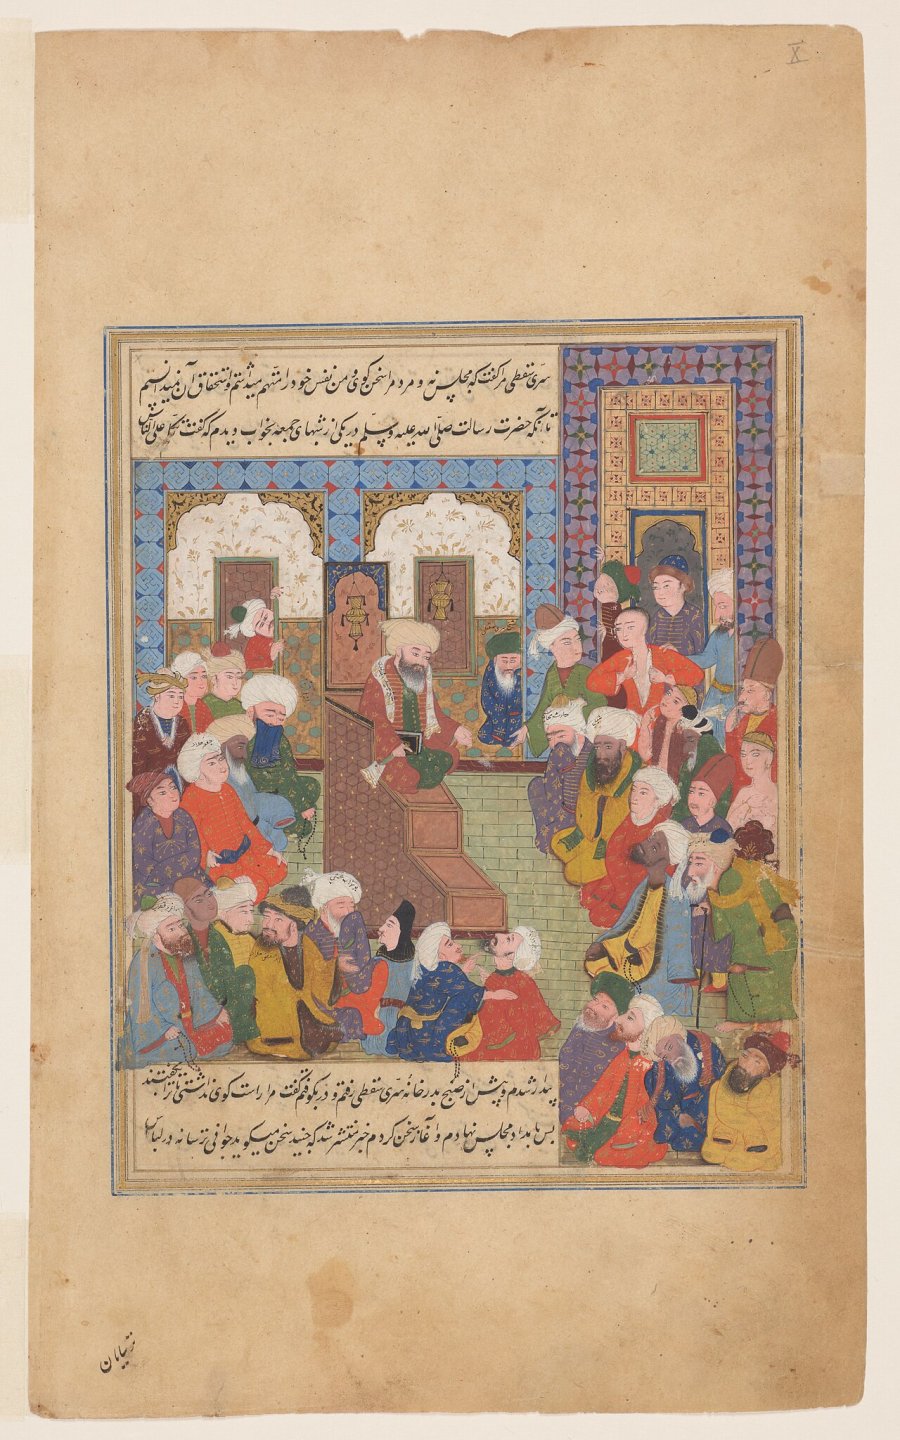 X
سری سقطی مرا گفت که مجلس نه و مردم را سخن گوی و من نفس خود را متهم میداشتم و استحقاق آن نمیدانستم
تا آنکه حضرت رسالت صلی الله علیه و سلم در یکی از شبهای جمعه بخواب دیدم که گفت تکلم علی الناس
بیدار شدم و پیش از صبح بدر خانه سری سقطی رفتم و در بکوفتم گفت مرا راست گوی نداشتی تا ترا نگفتند
پس بامداد مجلس نهادم و آغاز سخن کردم خبر منتشر شد که جنید سخن میگوید جوانی ترسا نه در لباس
ترسایان